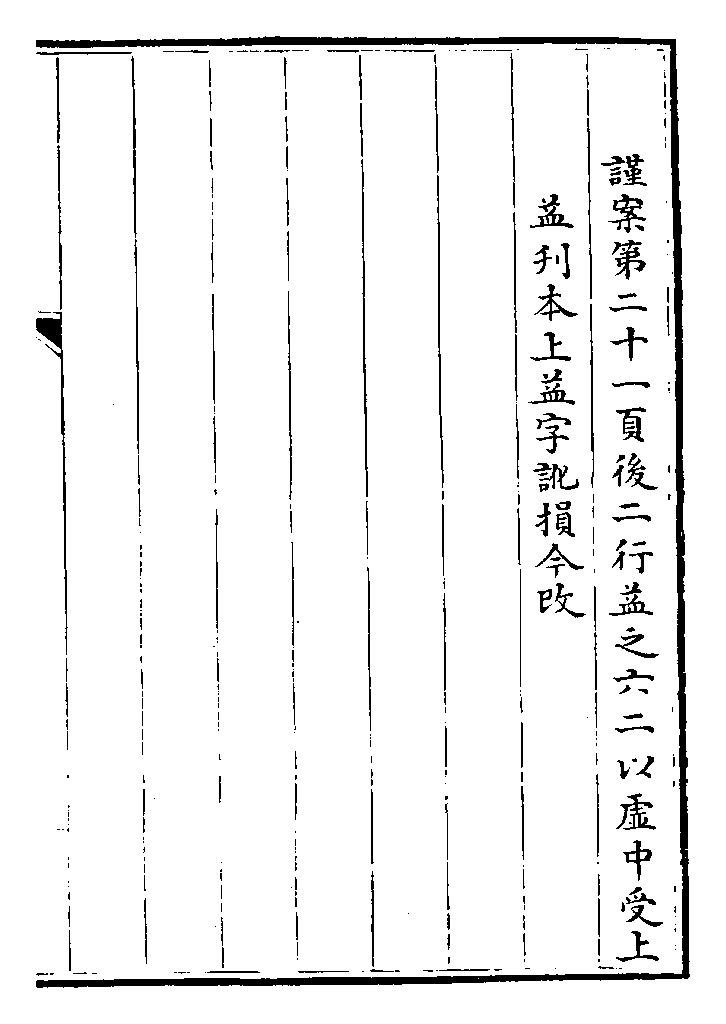 謹案第二十一頁後二行益之六二以虛中受上
益刋本上益字訛損今改